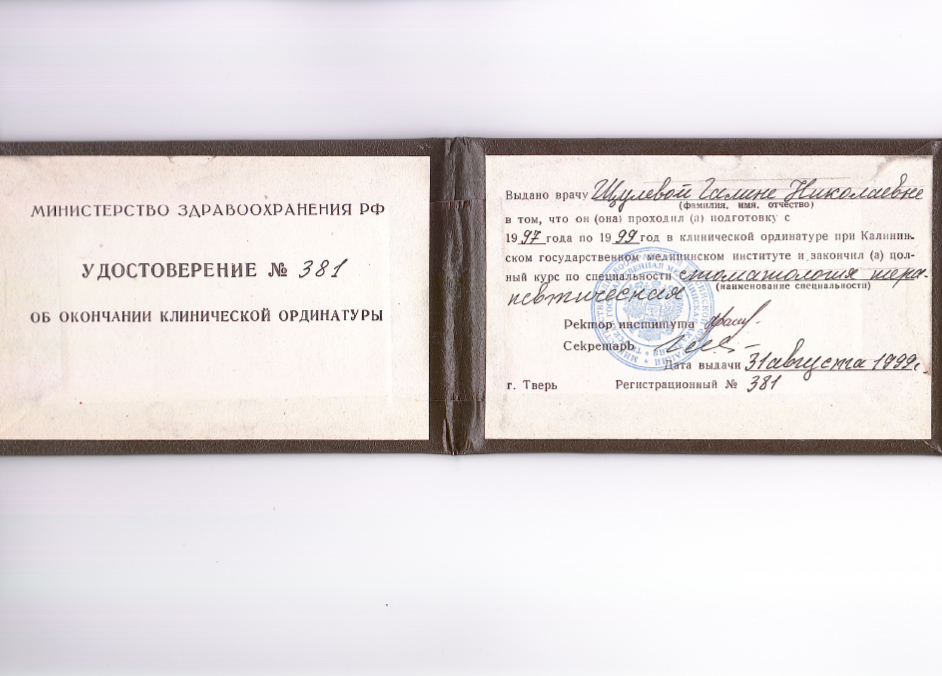 МИНИСТЕРСТВО ЗДРАВООХРАНЕНИЯ РФ
УДОСТОВЕРЕНИЕ № 381
ОБ ОКОНЧАНИИ КЛИНИЧЕСКОЙ ОРДИНАТУРЫ
Выдано врачу Шулевой Галине Николаевне
(фамилия, имя, отчество)
в том, что он (она) проходил (а) подготовку с
1997 года по 1999 год в клинической ординатуре при Калинин-
ском государственном медицинском институте и закончил (а) пол-
ный курс по специальности стоматология тера-
(наименование специальности)
певтическая
Ректор института
Секретарь
Дата выдачи 31 августа 1999г.
г. Тверь Регистрационный № 381